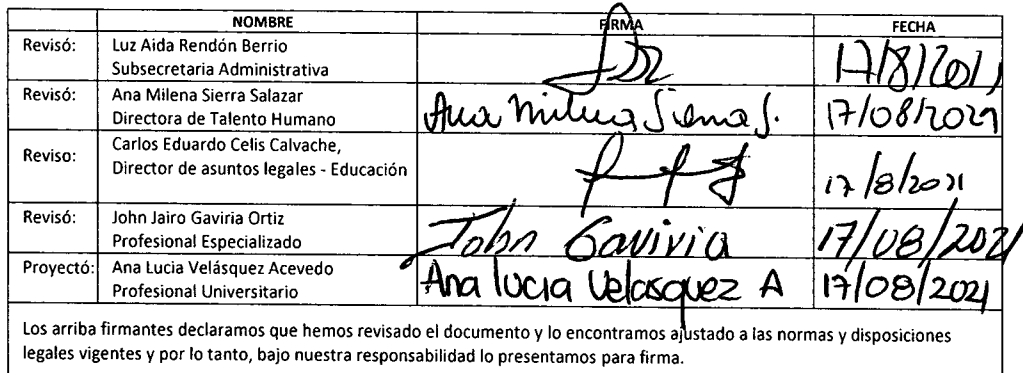 NOMBRE FIRMA FECHA
Revisó: Luz Aida Rendón Berrio
Subsecretaria Administrativa 17/8/2021
Revisó: Ana Milena Sierra Salazar
Directora de Talento Humano Ana Milena Sierra S. 17/08/2021
Reviso: Carlos Eduardo Celis Calvache,
Director de asuntos legales - Educación 17/8/2021
Revisó: John Jairo Gaviria Ortiz
Profesional Especializado John Gaviria 17/08/2021
Proyectó: Ana Lucia Velásquez Acevedo
Profesional Universitario Ana lucia Velasquez A 17/08/2021
Los arriba firmantes declaramos que hemos revisado el documento y lo encontramos ajustado a las normas y disposiciones
legales vigentes y por lo tanto, bajo nuestra responsabilidad lo presentamos para firma.